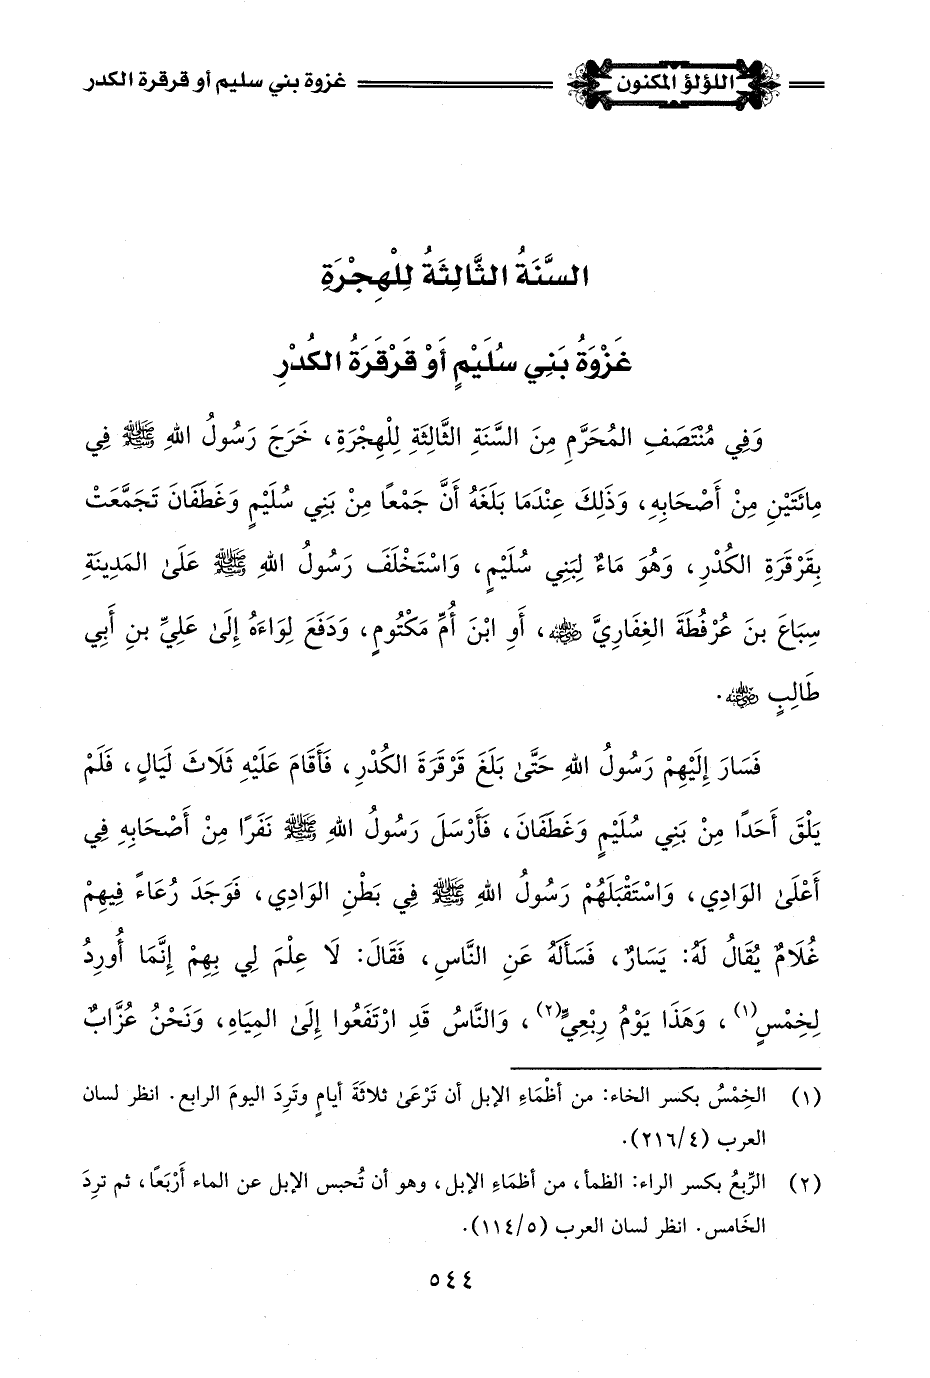 اللؤلؤ المكنون
غزوة بني سليم أو قرقرة الكدر
السَّنَةُ الثَّالِثَةُ لِلْهِجْرَةِ
غَزْوَةُ بَنِي سُلَيْمٍ أَوْ قَرْقَرَةُ الكُدْرِ
وَفِي مُنْتَصَفِ المُحَرَّمِ مِنَ السَّنَةِ الثَّالِثَةِ لِلْهِجْرَةِ، خَرَجَ رَسُولُ اللهِ ﷺ فِي
مِائَتَيْنِ مِنْ أَصْحَابِهِ، وَذَلِكَ عِنْدَمَا بَلَغَهُ أَنَّ جَمْعًا مِنْ بَنِي سُلَيْمٍ وَغَطَفَانَ تَجَمَّعَتْ
بِقَرْقَرَةِ الكُدْرِ، وَهُوَ مَاءٌ لِبَنِي سُلَيْمٍ، وَاسْتَخْلَفَ رَسُولُ اللهِ ﷺ عَلَىٰ المَدِينَةِ
سِبَاعَ بنَ عُرْفُطَةَ الغِفَارِيَّ رضي الله عنه، أَوِ ابْنَ أُمِّ مَكْتُومٍ، وَدَفَعَ لِوَاءَهُ إِلَىٰ عَلِيِّ بنِ أَبِي
طَالِبٍ رضي الله عنه.
فَسَارَ إِلَيْهِمْ رَسُولُ اللهِ حَتَّىٰ بَلَغَ قَرْقَرَةَ الكُدْرِ، فَأَقَامَ عَلَيْهِ ثَلَاثَ لَيَالٍ، فَلَمْ
يَلْقَ أَحَدًا مِنْ بَنِي سُلَيْمٍ وَغَطَفَانَ، فَأَرْسَلَ رَسُولُ اللهِ ﷺ نَفَرًا مِنْ أَصْحَابِهِ فِي
أَعْلَىٰ الوَادِي، وَاسْتَقْبَلَهُمْ رَسُولُ اللهِ ﷺ فِي بَطْنِ الوَادِي، فَوَجَدَ رُعَاءً فِيهِمْ
غُلَامٌ يُقَالُ لَهُ: يَسَارٌ، فَسَأَلَهُ عَنِ النَّاسِ، فَقَالَ: لَا عِلْمَ لِي بِهِمْ إِنَّمَا أُورِدُ
لِخِمْسٍ(١)، وَهَذَا يَوْمُ رِبْعِيٍّ(٢)، وَالنَّاسُ قَدِ ارْتَفَعُوا إِلَىٰ المِيَاهِ، وَنَحْنُ عُزَّابٌ
(١) الخِمْسُ بكسر الخاء: من أظْمَاءِ الإبل أن تَرْعَىٰ ثلاثَةَ أيامٍ وتَرِدَ اليومَ الرابع. انظر لسان
العرب (٤/ ٢١٦).
(٢) الرِّبعُ بكسر الراء: الظمأ، من أظمَاءِ الإبل، وهو أن تُحبس الإبل عن الماء أَرْبَعًا، ثم تردَ
الخَامس. انظر لسان العرب (٥/ ١١٤).
٥٤٤